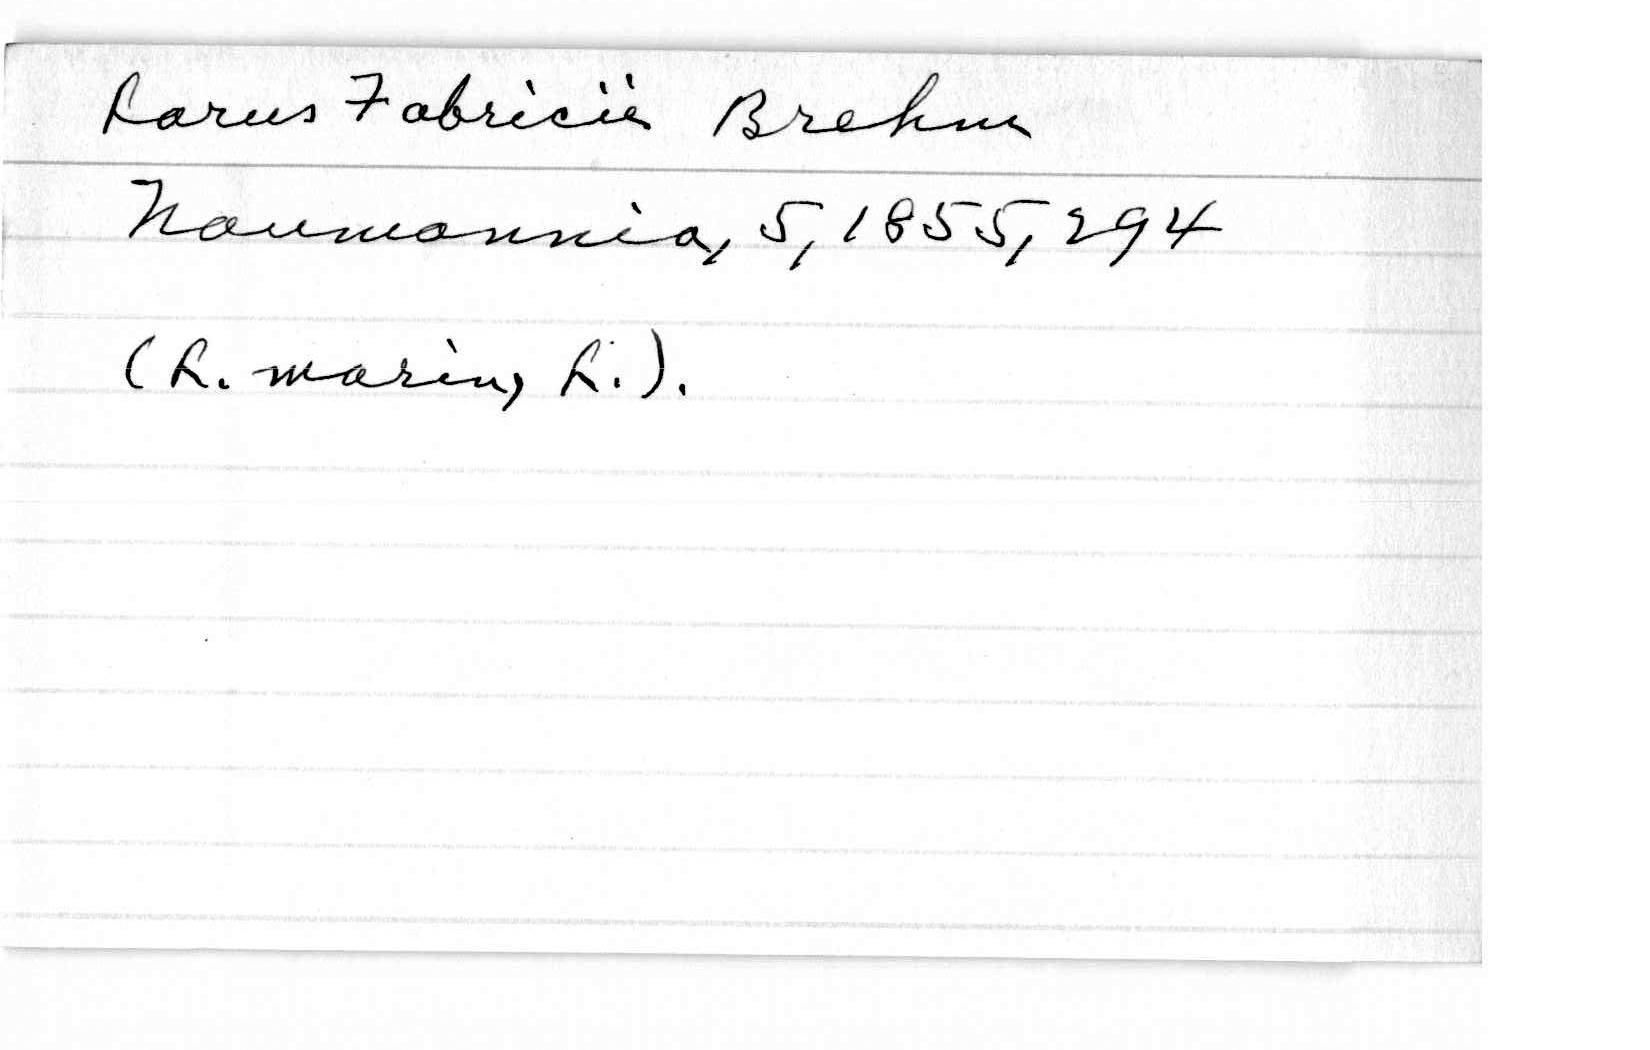 Larus Fabricii Brehm
Naumannia, 5, 1855, 294
(L. marin, L.).